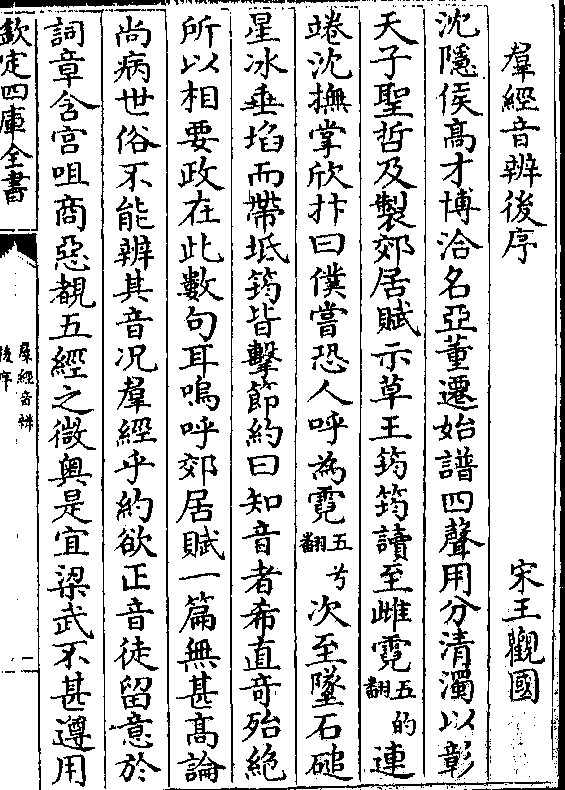 羣經音辨後序　宋王觀國
沈隱侯髙才博洽名亞董遷始譜四聲用分清濁以彰
天子聖哲及製郊居賦示草王筠筠讀至雌霓五的翻連
蜷沈撫掌欣抃曰僕嘗恐人呼為霓五兮翻次至墜石磓
星冰垂埳而帶坻筠皆擊節約曰知音者希直奇殆絶
所以相要政在此數句耳嗚呼郊居賦一篇無甚髙論
尚病世俗不能辨其音况羣經乎約欲正音徒留意於
詞章含宫咀商惡覩五經之微奥是宜梁武不甚遵用
欽定四庫全書
羣經音辨
後序